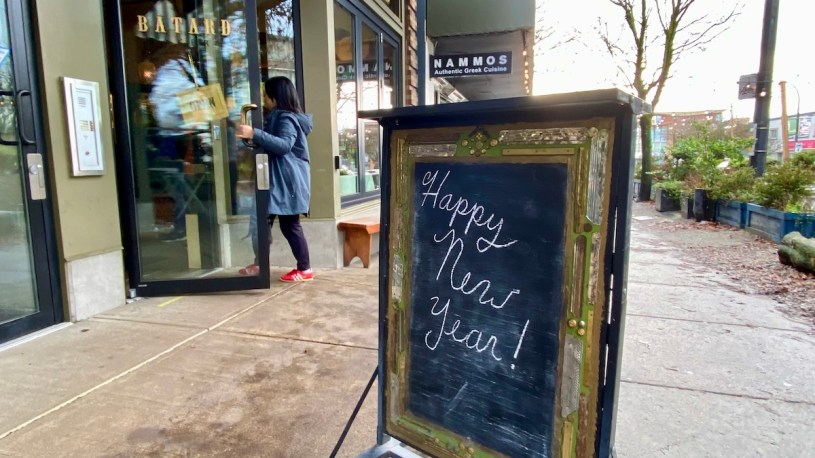 BATARD
NAMMOS
Authentic Greek Cuisine
Happy
New
Year!